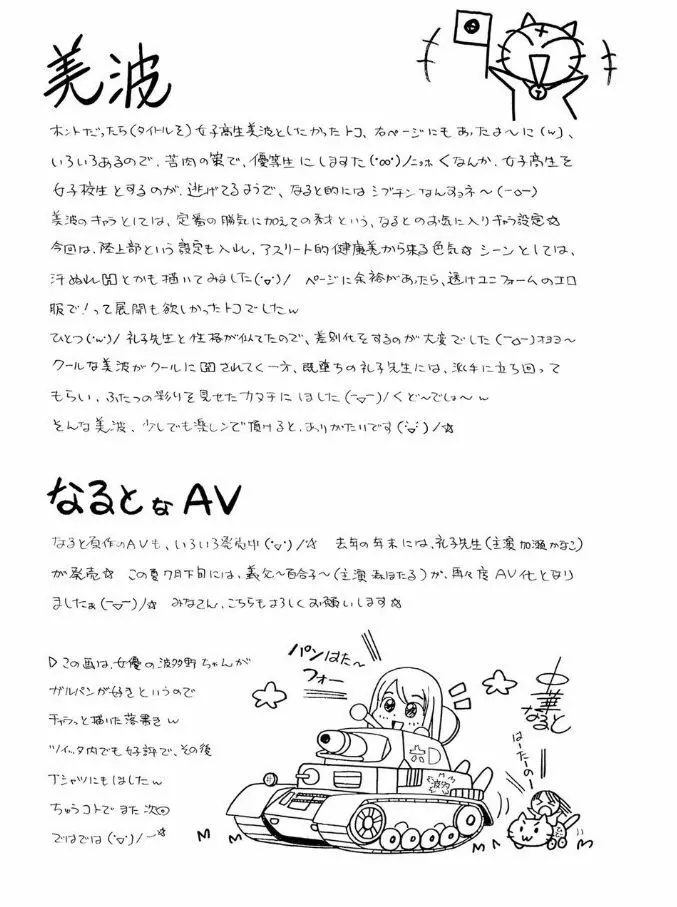 美波
ホントだったら(タイトルを)女子高生美波としたかったトコ、右ページにもあったよーに(w)、
いろいろあるので、苦肉の策で、優等生にしますた(°∞°)/ニッホくなんか、女子高生を
女子校生とするのが、逃げてるようで、なると的にはシブチンなんすョネ〜(ーoー)
美波のキャラとしては、定番の勝気に加えての秀才という、なるとのお気に入りキャラ設定☆
今回は、陸上部という設定も入れ、アスリート的健康美から来る色気☆シーンとしては、
汗ぬれHとかも描いてみました(°▽°)/ ページに余裕があったら、透けユニフォームのエロ
服で!って展開も欲しかったトコでしたw
ひとつ(°w°)/礼子先生と性格が似てたので、差別化をするのが大変でした(ー△ー)オヨヨ〜
クールな美波がクールに
されてく一方、既堕ちの礼子先生には、派手に立ち回って
もらい、ふたつの彩りを見せたカタチにしました(ー▽ー)/くど〜でしょ〜w
そんな美波、少しでも楽しンで頂けると、ありがたいです(°▽°)/☆
なるとなAV
なると原作のAVも、いろいろ発売中(°▽°)/☆ 去年の年末には、礼子先生(主演 加瀬かなこ)
が発売☆ この夏7月下旬には、義父〜百合子〜(主演
ほたる)が、再々度AV化となり
ましたぁ(ー▽ー)/☆ みなさん、こちらもよろしくお願いします☆
▷この画は、女優の波多野ちゃんが
ガルパンが好きというので
チャラっと描いた落書きw
ツイッタ内でも好評で、その後
Tシャツにもしましたw
ちゅうコトでまた次回
ではでは(°▽°)/~☆
パンはた〜
フォー
中華
なると
はーたーのー
波多